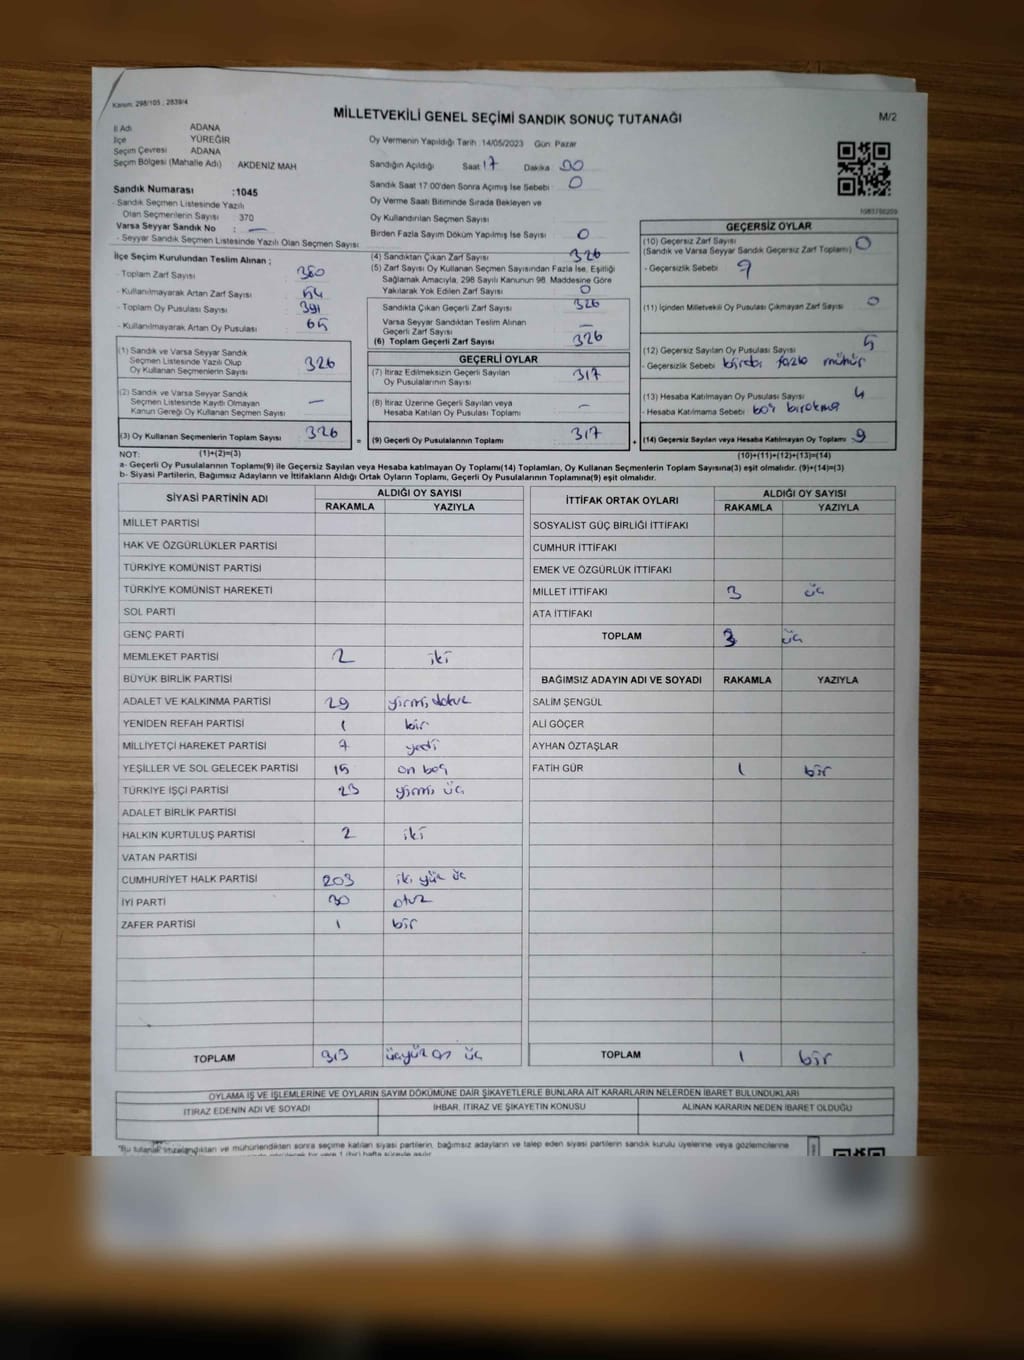 Kanun: 298/105 ; 2839/4
MİLLETVEKİLİ GENEL SEÇİMİ SANDIK SONUÇ TUTANAĞI
M/2
İl Adı ADANA
İlçe YÜREĞİR
Seçim Çevresi ADANA
Seçim Bölgesi (Mahalle Adı) AKDENİZ MAH
Sandık Numarası :1045
- Sandık Seçmen Listesinde Yazılı
Olan Seçmenlerin Sayısı : 370
Varsa Seyyar Sandık No : —
- Seyyar Sandık Seçmen Listesinde Yazılı Olan Seçmen Sayısı
Oy Vermenin Yapıldığı Tarih 14/05/2023 Gün Pazar
Sandığın Açıldığı Saat 17 Dakika 00
Sandık Saat 17:00'den Sonra Açılmış İse Sebebi 0
Oy Verme Saati Bitiminde Sırada Bekleyen ve
Oy Kullandırılan Seçmen Sayısı
Birden Fazla Sayım Döküm Yapılmış İse Sayısı 0
İlçe Seçim Kurulundan Teslim Alınan ;
- Toplam Zarf Sayısı 380
- Kullanılmayarak Artan Zarf Sayısı 54
- Toplam Oy Pusulası Sayısı 391
- Kullanılmayarak Artan Oy Pusulası 65
(1) Sandık ve Varsa Seyyar Sandık
Seçmen Listesinde Yazılı Olup
Oy Kullanan Seçmenlerin Sayısı 326
(2) Sandık ve Varsa Seyyar Sandık
Seçmen Listesinde Kayıtlı Olmayan
Kanun Gereği Oy Kullanan Seçmen Sayısı —
(3) Oy Kullanan Seçmenlerin Toplam Sayısı 326
(4) Sandıktan Çıkan Zarf Sayısı 326
(5) Zarf Sayısı Oy Kullanan Seçmen Sayısından Fazla İse, Eşitliği
Sağlamak Amacıyla, 298 Sayılı Kanunun 98. Maddesine Göre
Yakılarak Yok Edilen Zarf Sayısı 0
Sandıkta Çıkan Geçerli Zarf Sayısı 326
Varsa Seyyar Sandıktan Teslim Alınan
Geçerli Zarf Sayısı —
(6) Toplam Geçerli Zarf Sayısı 326
GEÇERLİ OYLAR
(7) İtiraz Edilmeksizin Geçerli Sayılan
Oy Pusulalarının Sayısı 317
(8) İtiraz Üzerine Geçerli Sayılan veya
Hesaba Katılan Oy Pusulası Toplamı —
= (9) Geçerli Oy Pusulalarının Toplamı 317
GEÇERSİZ OYLAR
(10) Geçersiz Zarf Sayısı
(Sandık ve Varsa Seyyar Sandık Geçersiz Zarf Toplamı) 0
- Geçersizlik Sebebi 9
(11) İçinden Milletvekili Oy Pusulası Çıkmayan Zarf Sayısı 0
(12) Geçersiz Sayılan Oy Pusulası Sayısı 5
- Geçersizlik Sebebi birden fazla mühür
(13) Hesaba Katılmayan Oy Pusulası Sayısı 4
- Hesaba Katılmama Sebebi boş bırakma
+ (14) Geçersiz Sayılan veya Hesaba Katılmayan Oy Toplamı 9
NOT: (1)+(2)=(3) (10)+(11)+(12)+(13)=(14)
a- Geçerli Oy Pusulalarının Toplamı(9) ile Geçersiz Sayılan veya Hesaba katılmayan Oy Toplamı(14) Toplamları, Oy Kullanan Seçmenlerin Toplam Sayısına(3) eşit olmalıdır. (9)+(14)=(3)
b- Siyasi Partilerin, Bağımsız Adayların ve İttifakların Aldığı Ortak Oyların Toplamı, Geçerli Oy Pusulalarının Toplamına(9) eşit olmalıdır.
SİYASİ PARTİNİN ADI ALDIĞI OY SAYISI
RAKAMLA YAZIYLA
MİLLET PARTİSİ
HAK VE ÖZGÜRLÜKLER PARTİSİ
TÜRKİYE KOMÜNİST PARTİSİ
TÜRKİYE KOMÜNİST HAREKETİ
SOL PARTİ
GENÇ PARTİ
MEMLEKET PARTİSİ 2 iki
BÜYÜK BİRLİK PARTİSİ
ADALET VE KALKINMA PARTİSİ 29 yirmi dokuz
YENİDEN REFAH PARTİSİ 1 bir
MİLLİYETÇİ HAREKET PARTİSİ 7 yedi
YEŞİLLER VE SOL GELECEK PARTİSİ 15 on beş
TÜRKİYE İŞÇİ PARTİSİ 23 yirmi üç
ADALET BİRLİK PARTİSİ
HALKIN KURTULUŞ PARTİSİ 2 iki
VATAN PARTİSİ
CUMHURİYET HALK PARTİSİ 203 iki yüz üç
İYİ PARTİ 30 otuz
ZAFER PARTİSİ 1 bir
TOPLAM 313 üçyüz on üç
İTTİFAK ORTAK OYLARI ALDIĞI OY SAYISI
RAKAMLA YAZIYLA
SOSYALİST GÜÇ BİRLİĞİ İTTİFAKI
CUMHUR İTTİFAKI
EMEK VE ÖZGÜRLÜK İTTİFAKI
MİLLET İTTİFAKI 3 üç
ATA İTTİFAKI
TOPLAM 3 üç
BAĞIMSIZ ADAYIN ADI VE SOYADI RAKAMLA YAZIYLA
SALİM ŞENGÜL
ALİ GÖÇER
AYHAN ÖZTAŞLAR
FATİH GÜR 1 bir
TOPLAM 1 bir
OYLAMA İŞ VE İŞLEMLERİNE VE OYLARIN SAYIM DÖKÜMÜNE DAİR ŞİKAYETLERLE BUNLARA AİT KARARLARIN NELERDEN İBARET BULUNDUKLARI
İTİRAZ EDENİN ADI VE SOYADI İHBAR, İTİRAZ VE ŞİKAYETİN KONUSU ALINAN KARARIN NEDEN İBARET OLDUĞU
"Bu tutanak imzalandıktan ve mühürlendikten sonra seçime katılan siyasi partilerin, bağımsız adayların ve talep eden siyasi partilerin sandık kurulu üyelerine veya gözlemcilerine